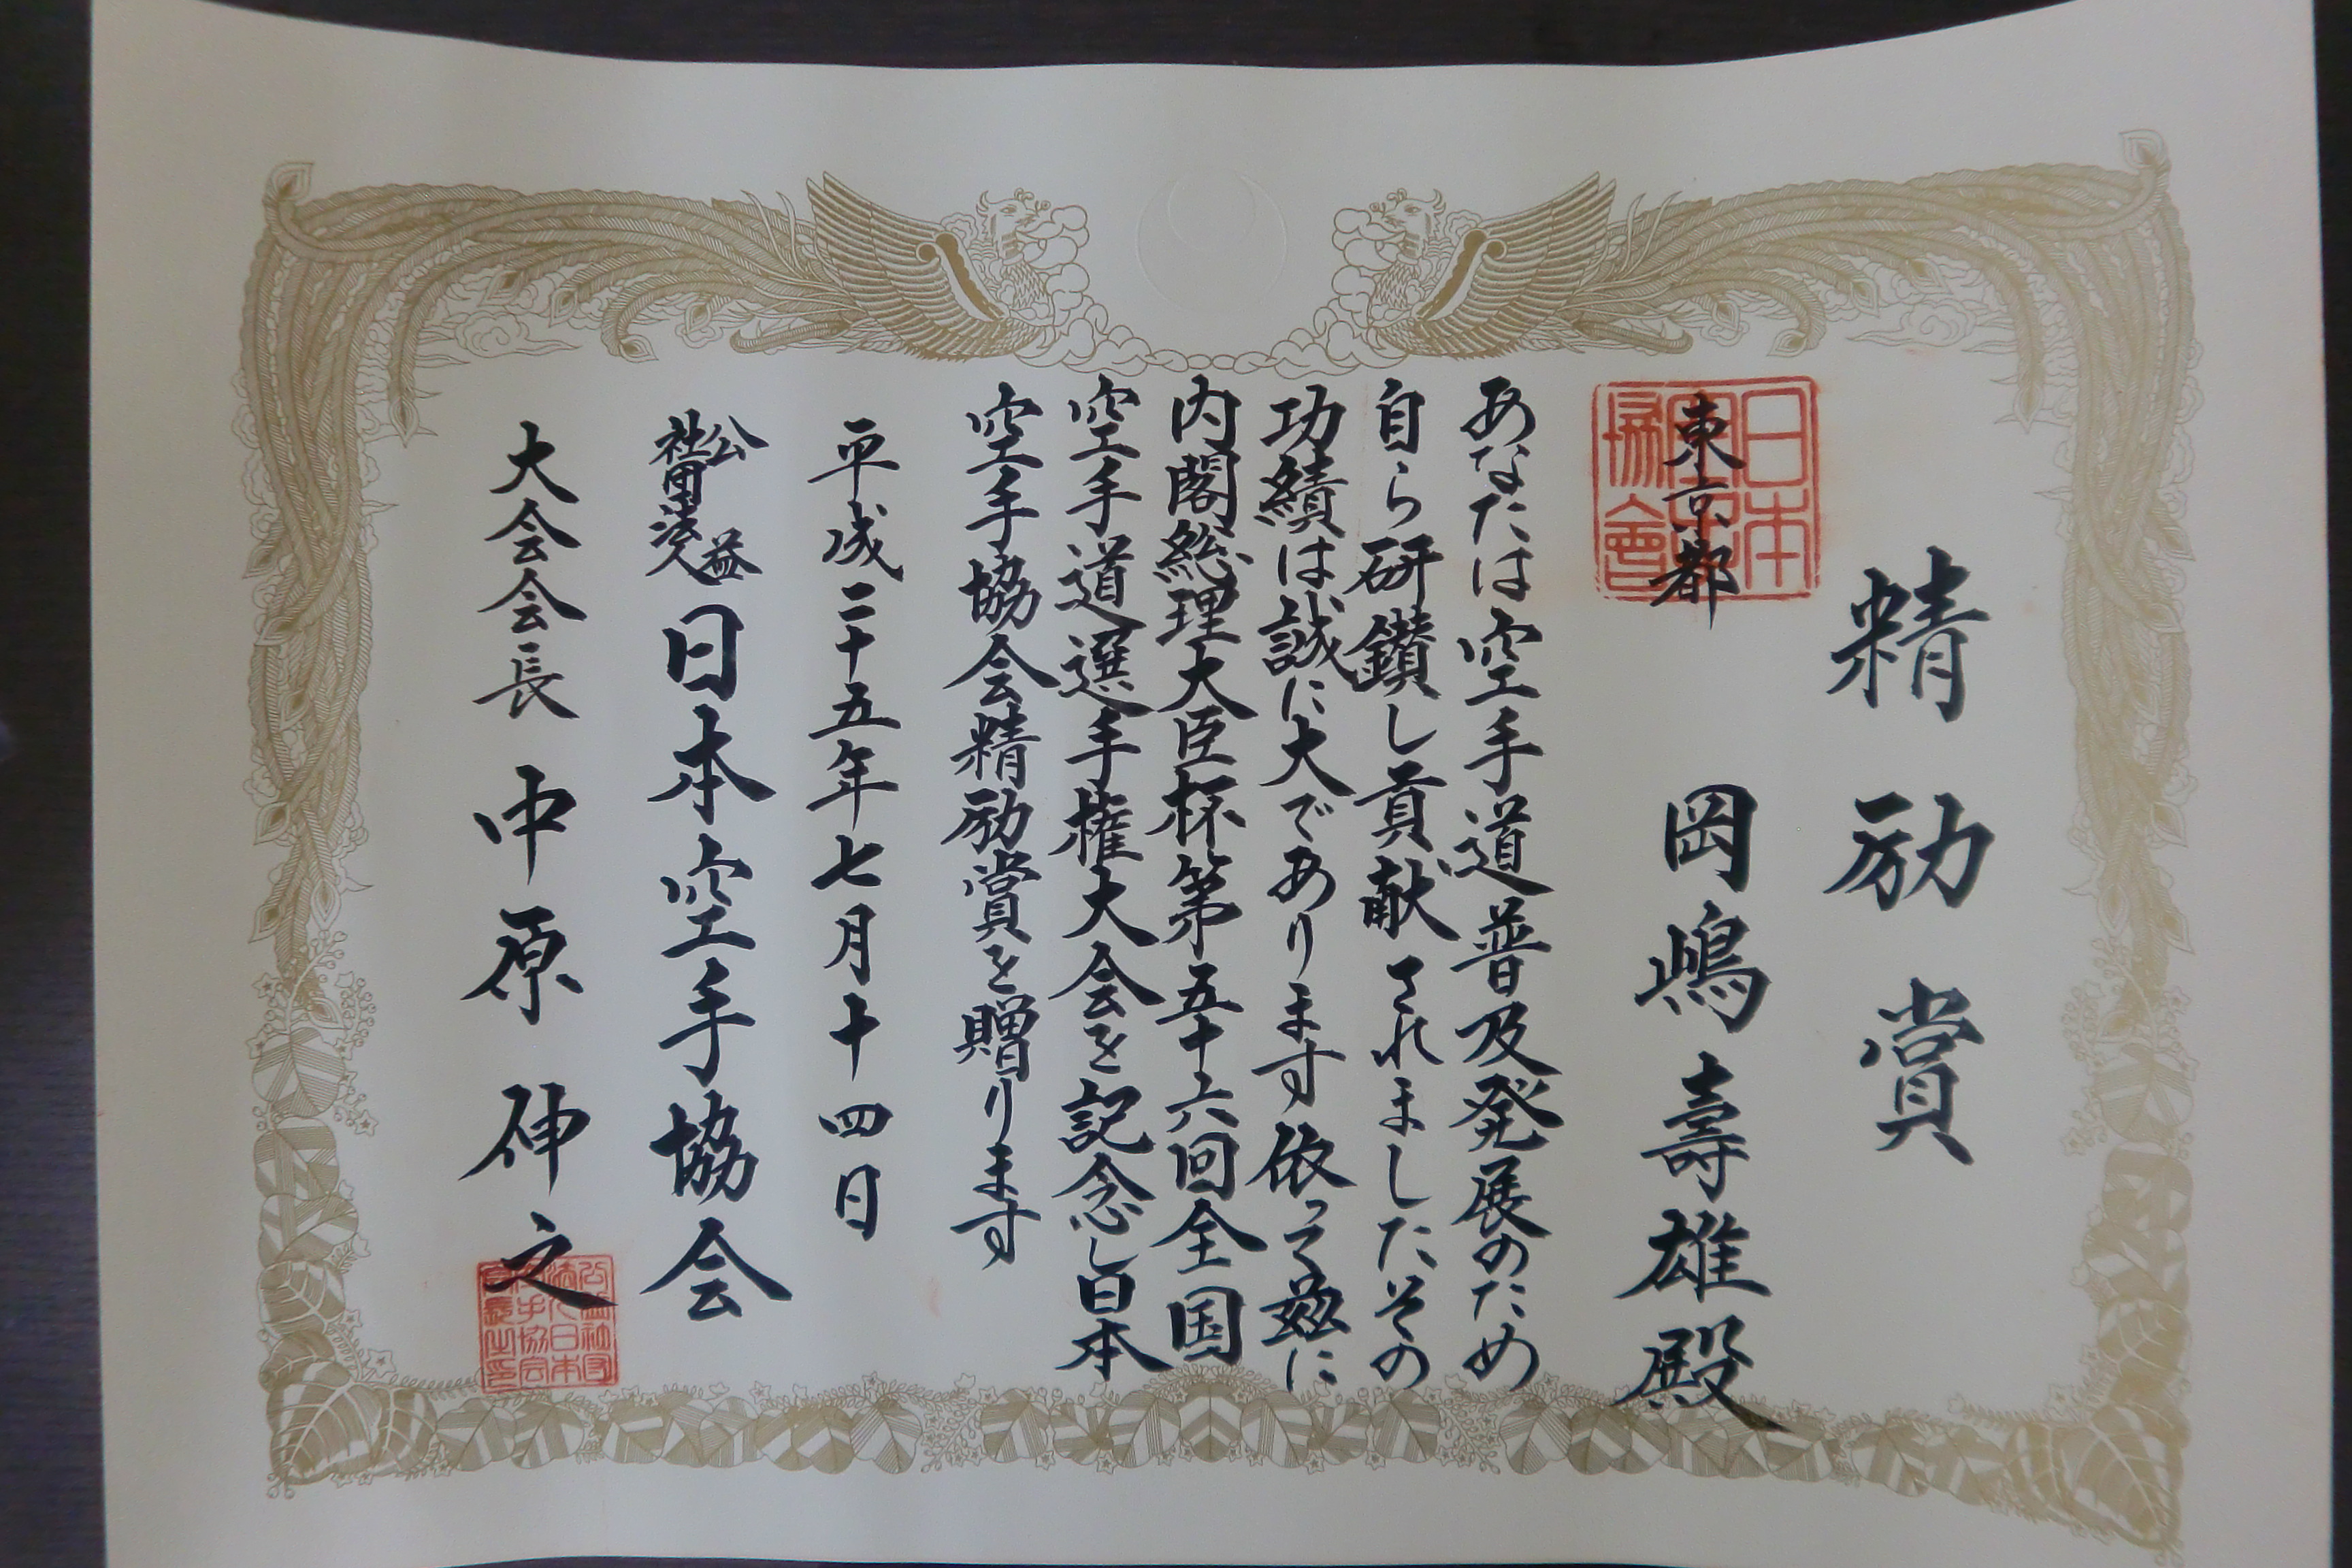 精励賞
東京都 岡嶋壽雄殿
あなたは空手道普及発展のため
自ら研鑽し貢献されましたその
功績は誠に大であります依って茲に
内閣総理大臣杯第五十六回全国
空手道選手権大会を記念し日本
空手協会精励賞を贈ります
平成二十五年七月十四日
公益社団法人日本空手協会
大会会長 中原伸之
日本空手協會